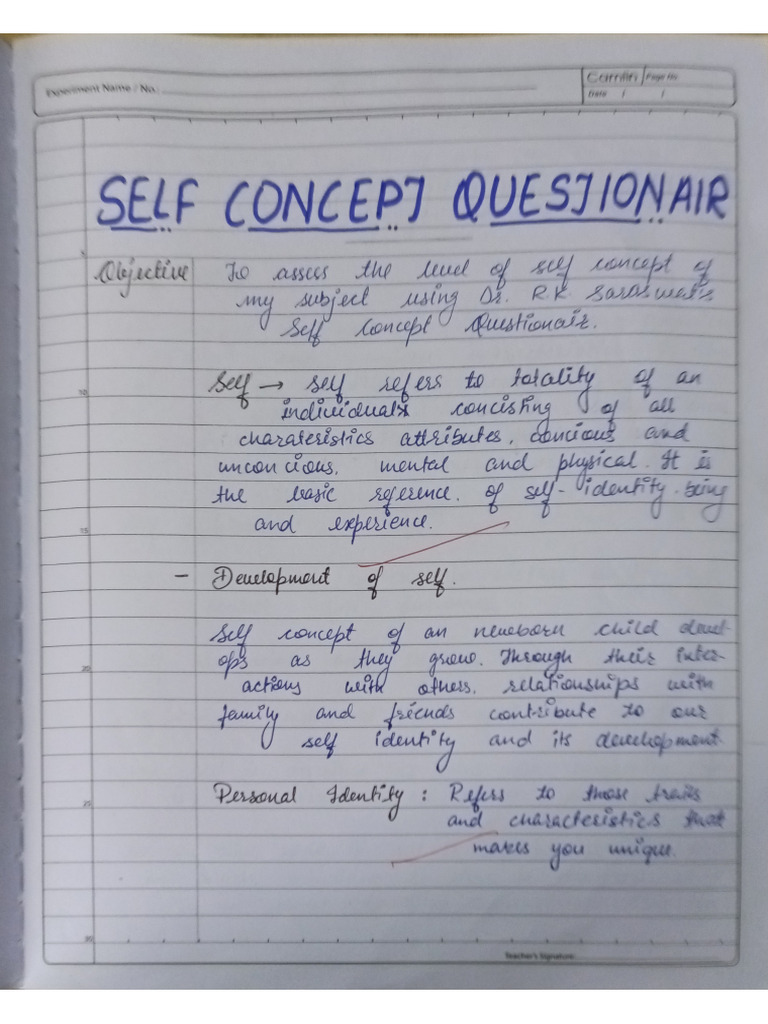 Experiment Name / No.
Camlin Page No.
Date / /
SELF CONCEPT QUESTIONAIR
Objective To assess the level of self concept of
my subject using Dr. R.K. Saraswat's
Self Concept Questionair.
Self → self refers to totality of an
individuals concisting of all
charateristics attributes, concious and
unconcious, mental and physical. It is
the basic reference. of self-identity. being
and experience.
- Development of self.
Self concept of an newborn child devel-
ops as they grow. Through their inter-
actions with others. relationships with
family and friends contribute to our
self identity and its development
Personal Identity : Refers to those traits
and characteristics that
makes you unique.
Teacher's Signature
5
10
15
20
25
30